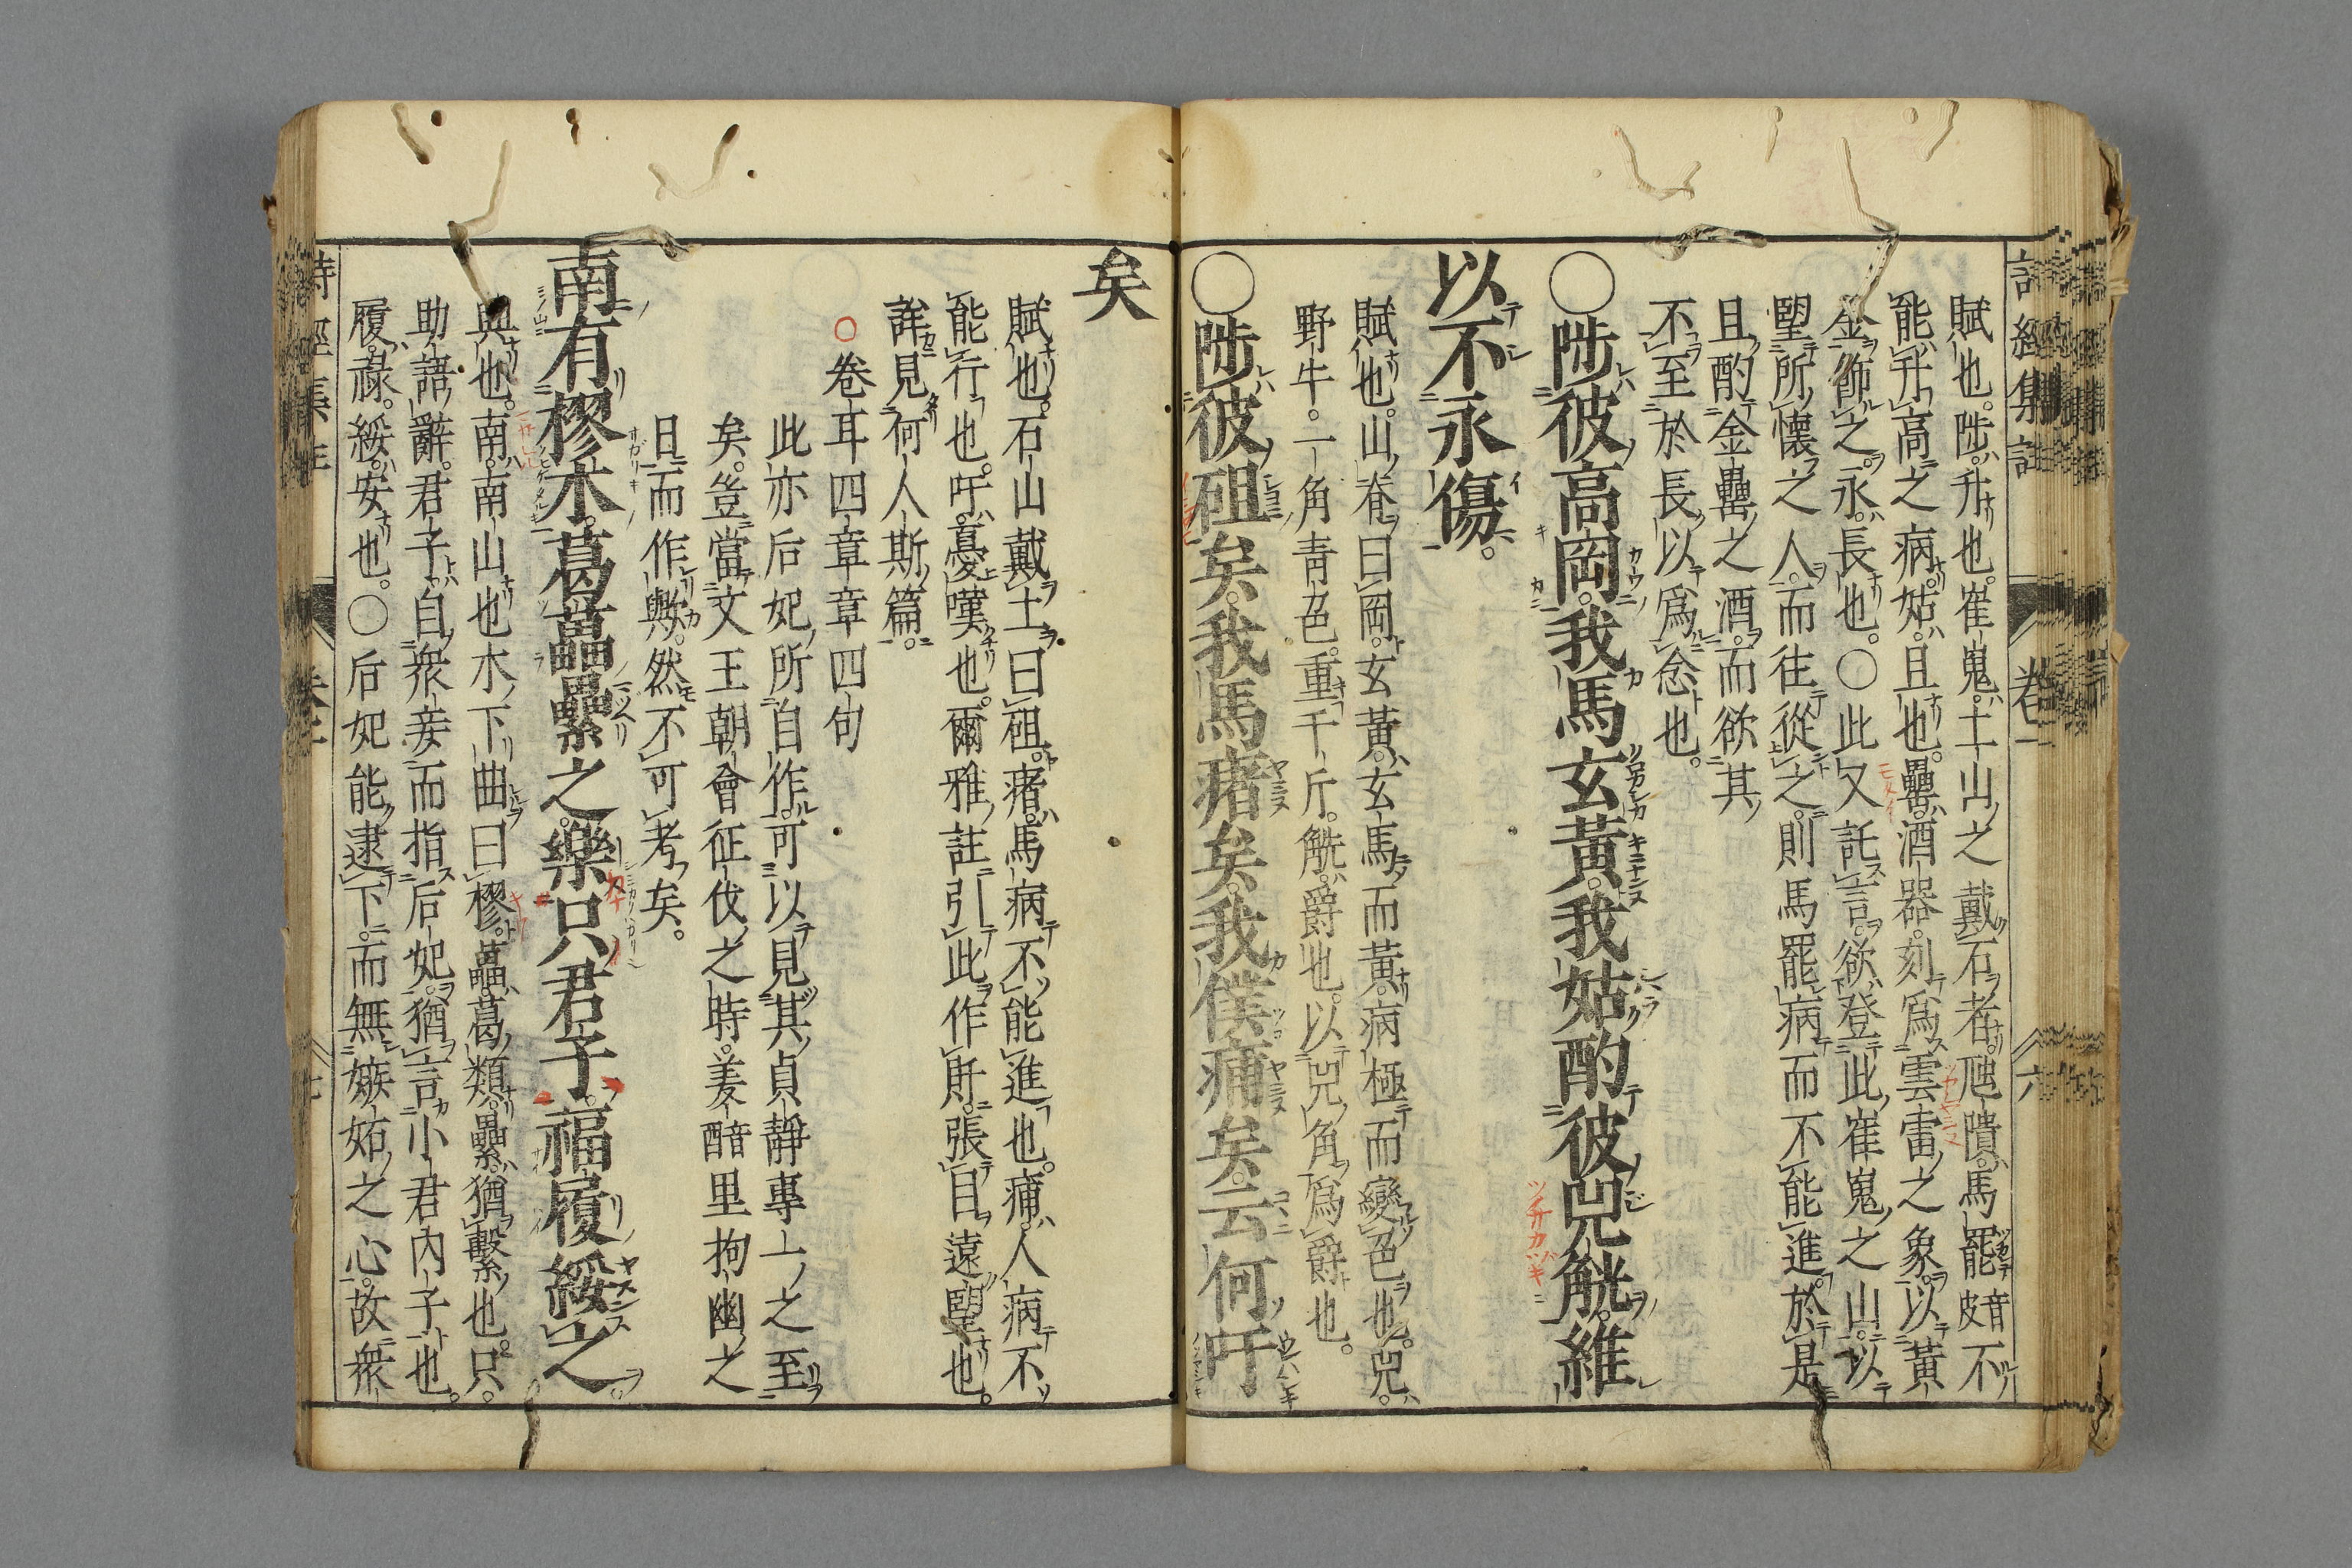 詩經集註 卷一 六
賦也。陟。升也。崔嵬。土山之戴石者。虺隤。馬罷音皮不
能升高之病。姑。且也。罍。酒器。刻爲雲雷之象。以黃
金飾之。永。長也。○此又託言。欲登此崔嵬之山。以
望所懷之人。而往從之。則馬罷病而不能進。於是
且酌金罍之酒。而欲其
不至於長以爲念也。
○陟彼高岡。我馬玄黃。我姑酌彼兕觥。維
以不永傷。
賦也。山脊曰岡。玄黃。玄馬而黃。病極而變色也。兕。
野牛。一角青色。重千斤。觥。爵也。以兕角爲爵也。
○陟彼砠矣。我馬瘏矣。我僕痡矣。云何吁
矣
賦也。石山戴土曰砠。瘏。馬病不能進也。痡。人病不
能行也。吁。憂嘆也。爾雅註引此作盱。張目遠望也。
詳見何人斯篇。
○卷耳四章章四句
此亦后妃所自作。可以見其貞靜專一之至
矣。豈當文王朝會征伐之時。羑里拘幽之
日而作歟。然不可考矣。
南有樛木。葛藟纍之。樂只君子。福履綏之。
興也。南。南山也。木下曲曰樛。藟。葛類。纍。猶繫也。只。
助語辭。君子。自衆妾而指后妃。猶言小君內子也。
履。祿。綏。安也。○后妃能逮下。而無嫉妬之心。故衆